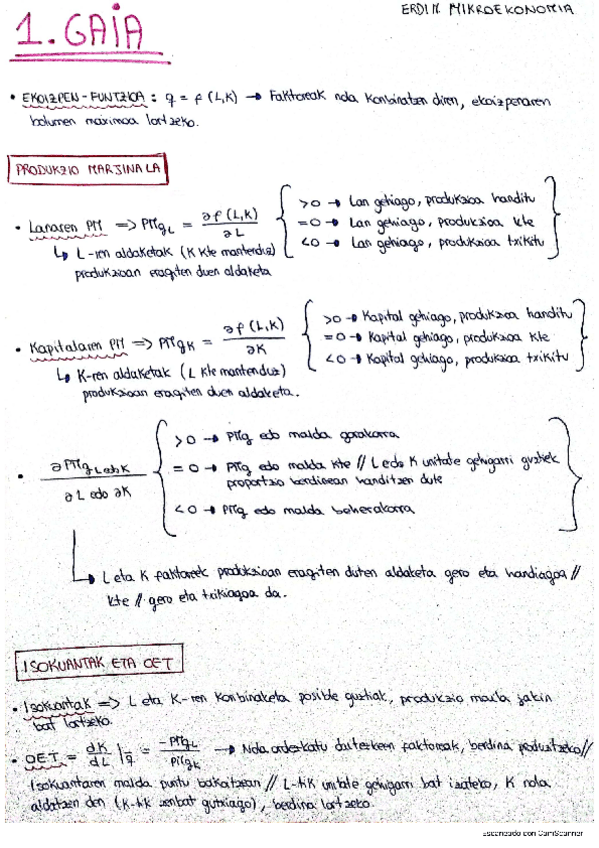 ERDI M. MIKROEKONOMIA
1. GAIA
• EKOIZPEN-FUNTZIOA : q = f (L,K) → Faktoreak nola konbinatzen diren, ekoizpenaren
bolumen maximoa lortzeko.
PRODUKZIO MARJINALA
• Lanaren PM => PMg_L = ∂f (L,K) / ∂L
>0 → Lan gehiago, produkzioa handitu
=0 → Lan gehiago, produkzioa kte
<0 → Lan gehiago, produkzioa txikitu
↳ L-ren aldaketak (K kte mantenduz)
produkzioan eragiten duen aldaketa
• Kapitalaren PM => PMg_K = ∂f (L,K) / ∂K
>0 → Kapital gehiago, produkzioa handitu
=0 → Kapital gehiago, produkzioa kte
<0 → Kapital gehiago, produkzioa txikitu
↳ K-ren aldaketak (L kte mantenduz)
produkzioan eragiten duen aldaketa.
• ∂PMg L edo K / ∂L edo ∂K
>0 → PMg edo malda gorakorra
=0 → PMg edo malda kte // L edo K unitate gehigarri guztiek
proportzio berdinean handitzen dute
<0 → PMg edo malda beherakorra
↳ L eta K faktoreek produkzioan eragiten duten aldaketa gero eta handiagoa //
kte // gero eta txikiagoa da.
ISOKUANTAK ETA OET
• Isokuantak => L eta K-ren konbinaketa posible guztiak, produkzio maila jakin
bat lortzeko.
• OET = dK/dL |q̄ = -PMg_L / PMg_K → Nola ordezkatu daitezkeen faktoreak, berdina produzitzeko //
Isokuantaren malda puntu bakoitzean // L-tik unitate gehigarri bat izateko, K nola
aldatzen den (K-tik zenbat gutxiago), berdina lortzeko.
Escaneado con CamScanner